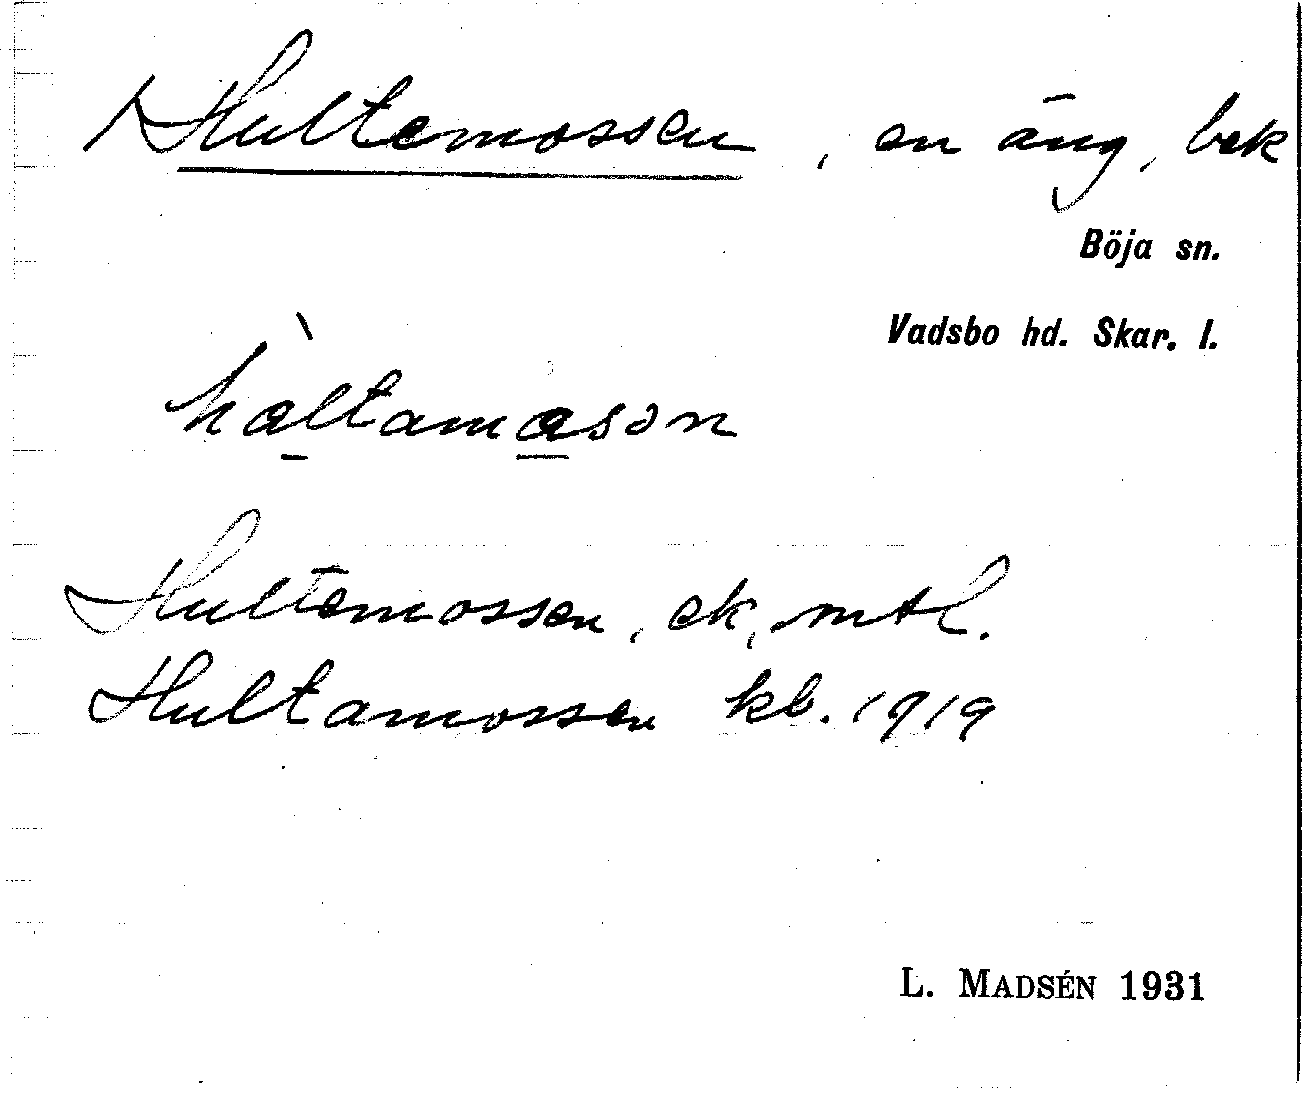 Hultemossen, en äng, bek
Böja sn.
Vadsbo hd. Skar. l.
hàltamasən
Hultemossen, ek, mtl.
Hultamossen kb. 1919
L. MADSÉN 1931